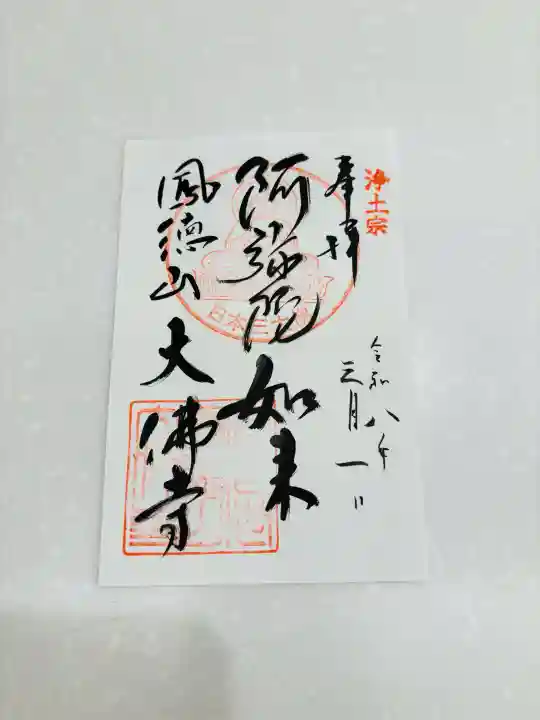 浄土宗
奉拝
令和八年
三月一日
阿弥陀如来
鳳徳山大佛寺
日本三大佛